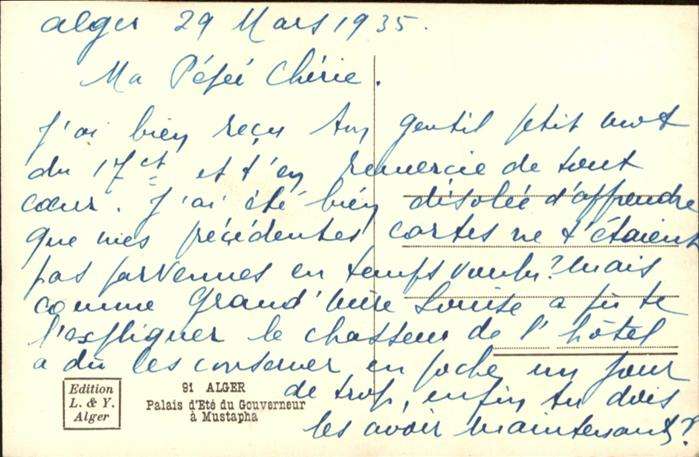 Alger 29 Mars 1935.
Ma Pépée Chérie.
J'ai bien reçu ton gentil petit mot
du 17ct et t'en remercie de tout
cœur. J'ai été bien désolée d'apprendre
que mes précédentes cartes ne t'étaient
pas parvenues en temps voulu? mais
comme Grand'Mère Louise a pu te
l'expliquer le chasseur de l'hôtel
a dû les conserver en poche un jour
de trop, enfin tu dois
les avoir maintenant?
Edition
L. & Y.
Alger
91 ALGER
Palais d'Eté du Gouverneur
à Mustapha